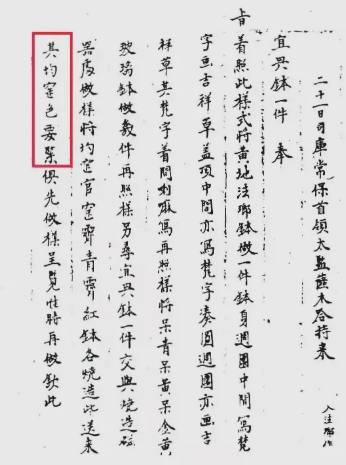 二十一日司庫常保首領太監薩木哈持来
入法瑯作
宜興鉢一件 奉
旨着照此樣式將黄地法瑯鉢做一件鉢身週圍中間寫梵
字画吉祥草盖頂中間亦寫梵字凑圓週圍亦画吉
祥草其梵字着問喇嘛寫再照樣將呆青呆黄呆金黄
玻璃鉢做数件再照樣另尋宜興鉢一件交與燒造磁
器處做樣將均窑官窑霽青霽紅鉢各燒造些送来
其均窑色要緊俱先做樣呈覽准時再做欽此